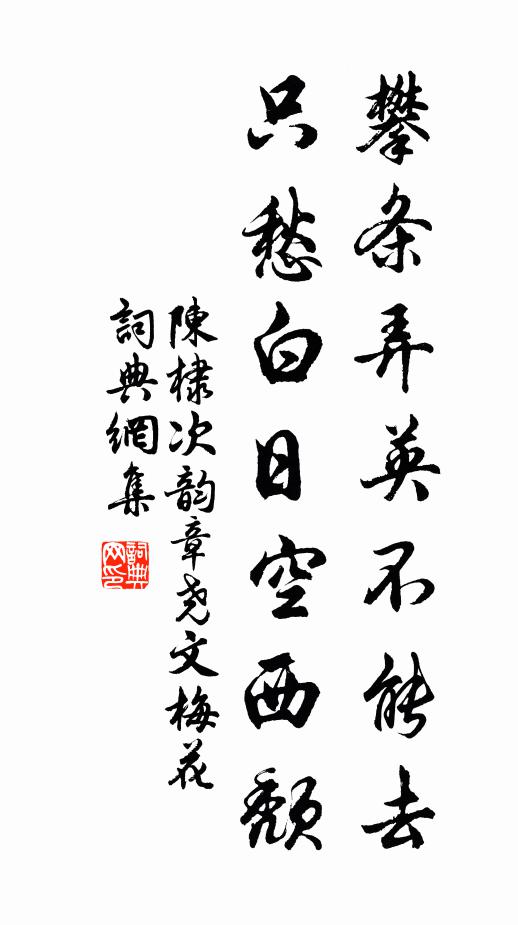 攀条弄英不能去
只愁白日空西颓
陳棣次韵章尧文梅花
詞典網集
詞典网印